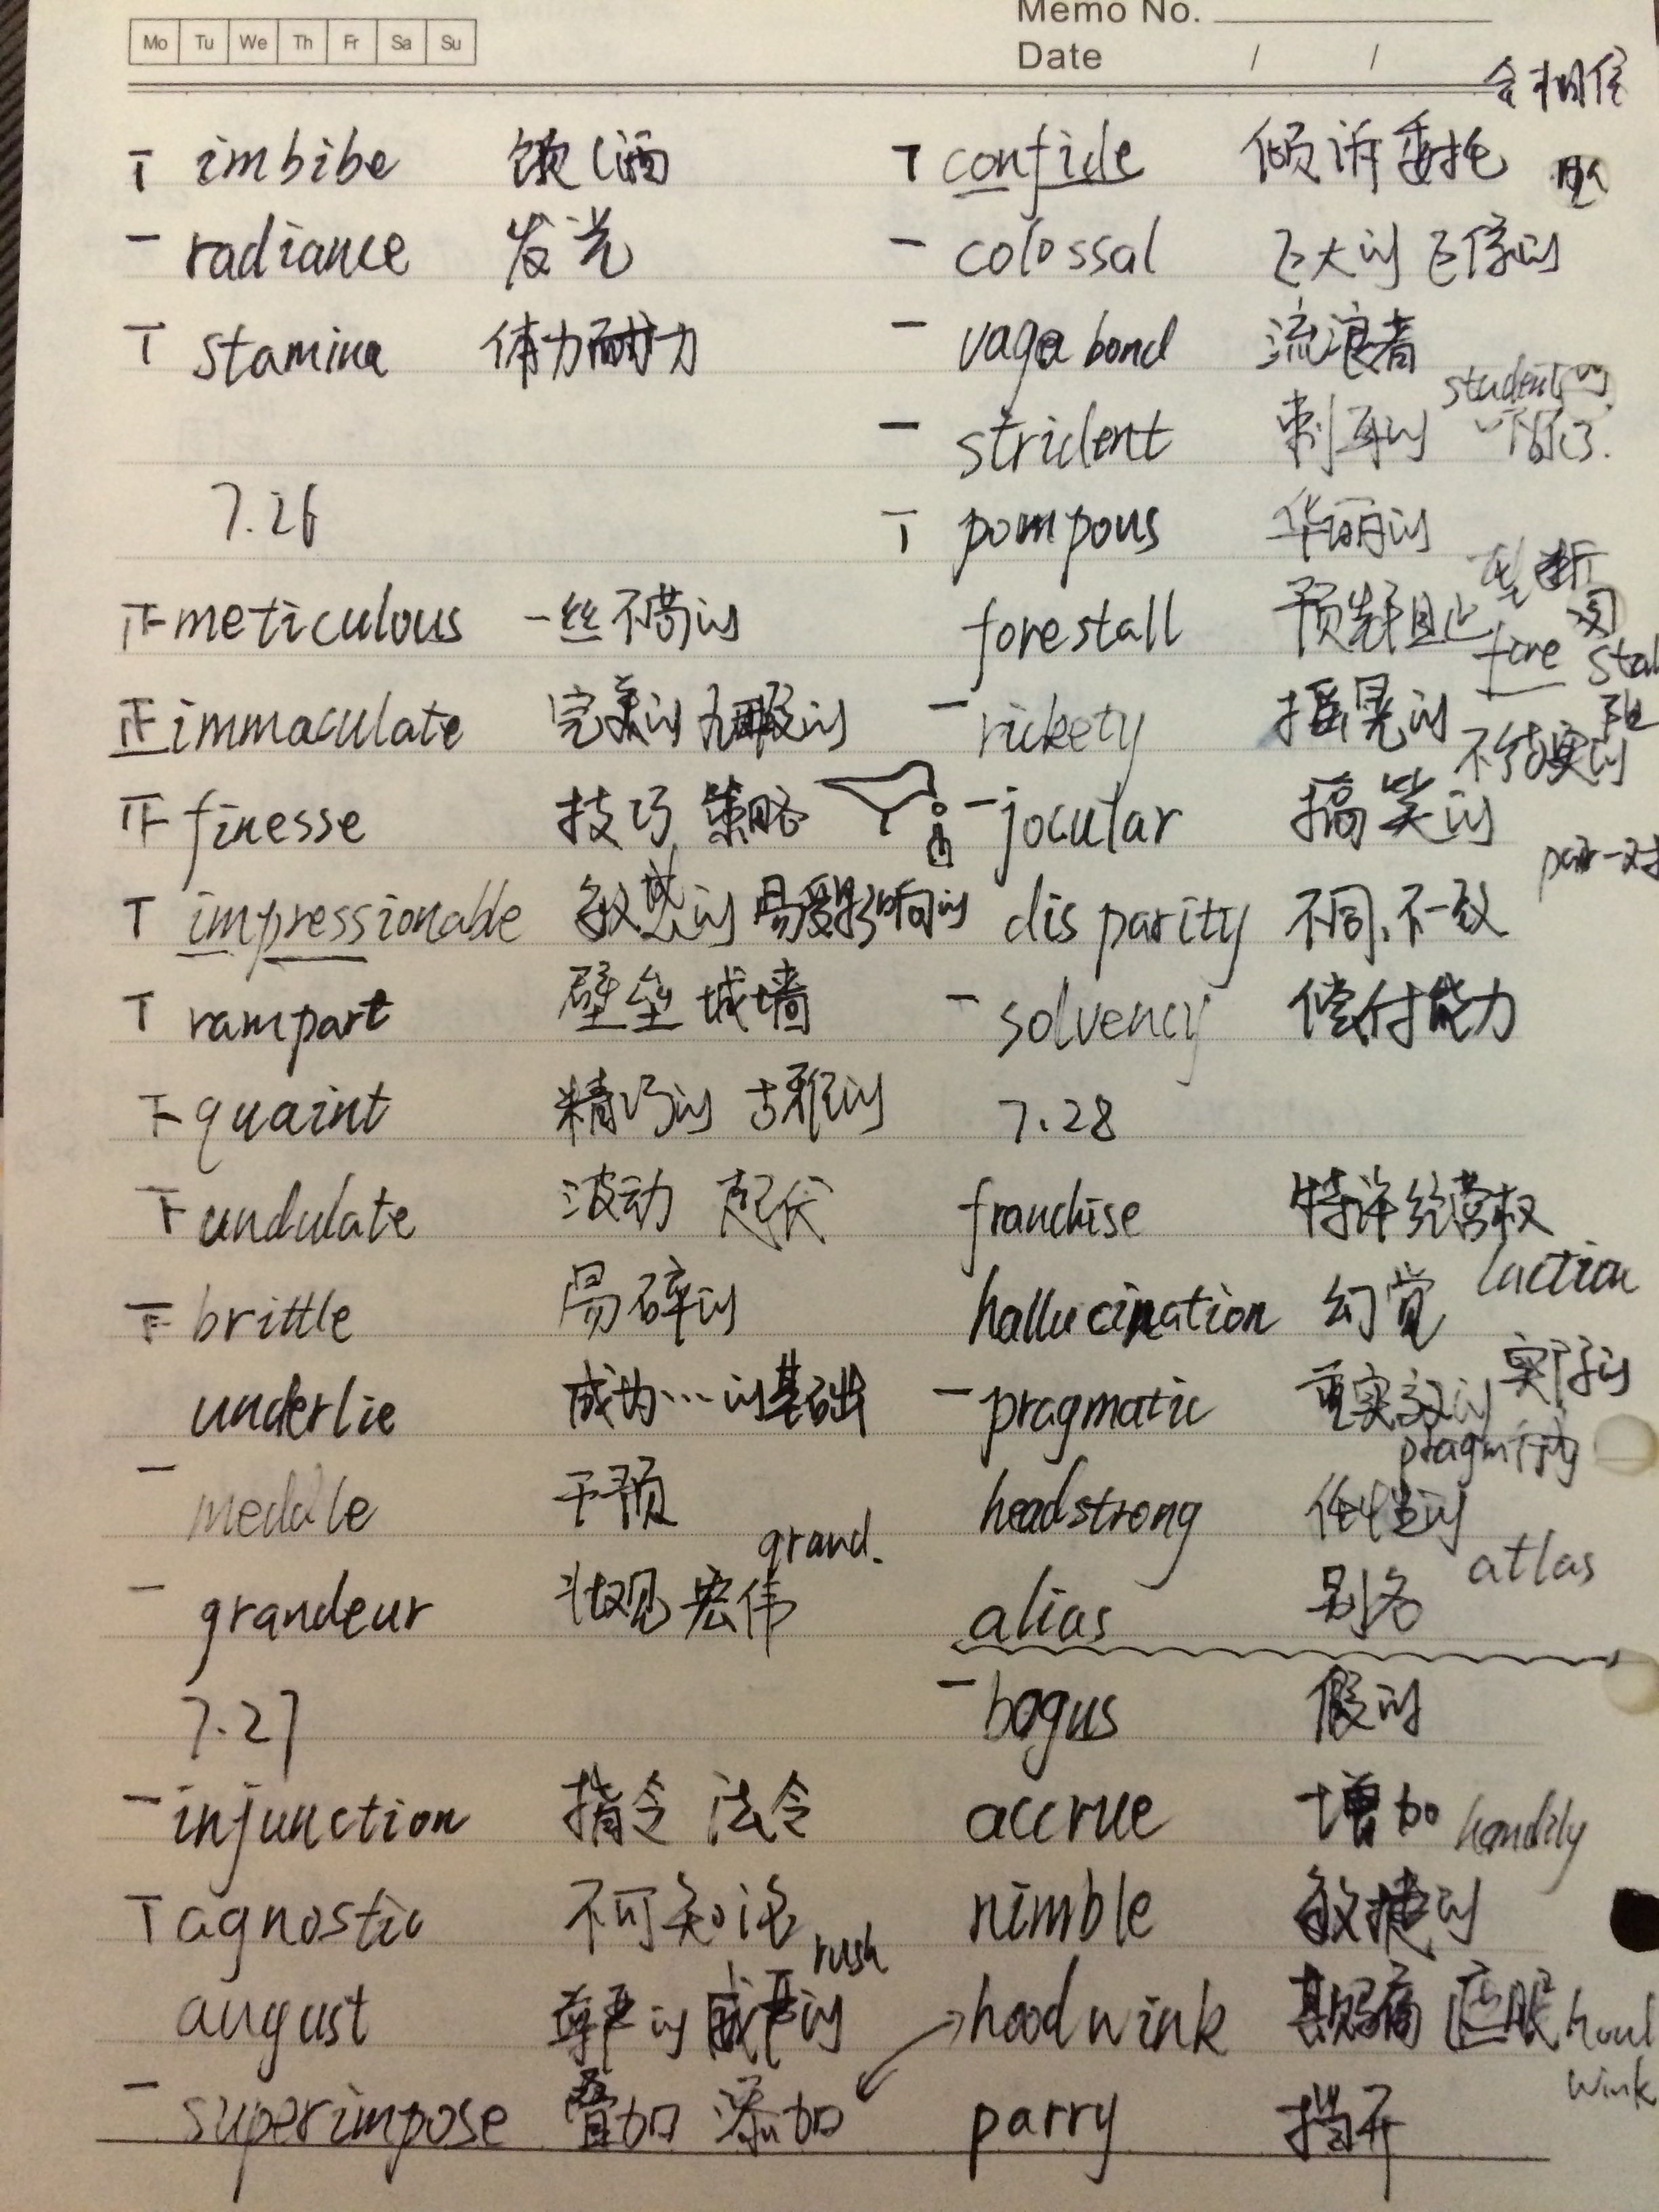 Memo No.
Mo Tu We Th Fr Sa Su
Date / /
imbibe 饮(酒
radiance 发光
stamina 体力 耐力
7.26
meticulous 一丝不苟的
immaculate 完美的 无瑕的
finesse 技巧 策略
impressionable 敏感的 易受影响的
rampart 壁垒 城墙
quaint 精巧的 古雅的
undulate 波动 起伏
brittle 易碎的
underlie 成为…的基础
meddle 干预
grand.
grandeur 壮观 宏伟
7.27
injunction 指令 法令
agnostic 不可知论
rush
august 尊严的 威严的
superimpose 叠加 添加
confide 倾诉 委托
colossal 巨大的 巨像的
vagabond 流浪者
student的
strident 刺耳的
pompous 华丽的
forestall 预先阻止
fore stal
rickety 摇晃的 不结实的
jocular 搞笑的
pair一对
disparity 不同、不一致
solvency 偿付能力
7.28
franchise 特许经营权
luction
hallucination 幻觉
pragmatic 重实效的 实际的
pragm行为
headstrong 任性的
atlas
alias 别名
bogus 假的
accrue 增加 handily
nimble 敏捷的
hoodwink 欺骗 遮眼
wink
parry 挡开